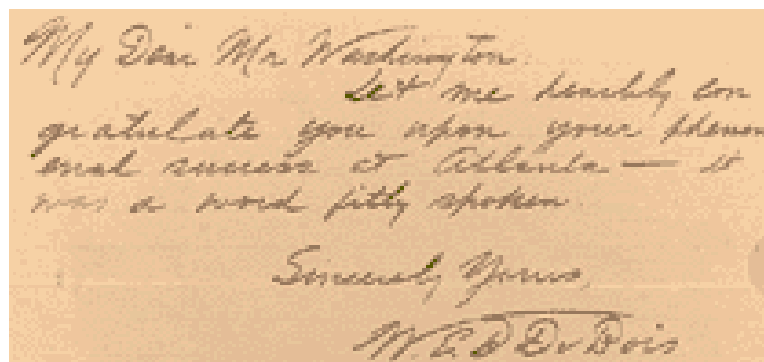 My Dear Mr Washington.
Let me heartily con
gratulate you upon your phenom
enal success at Atlanta — it
was a word fitly spoken
Sincerely Yours,
W. E. B. Du Bois